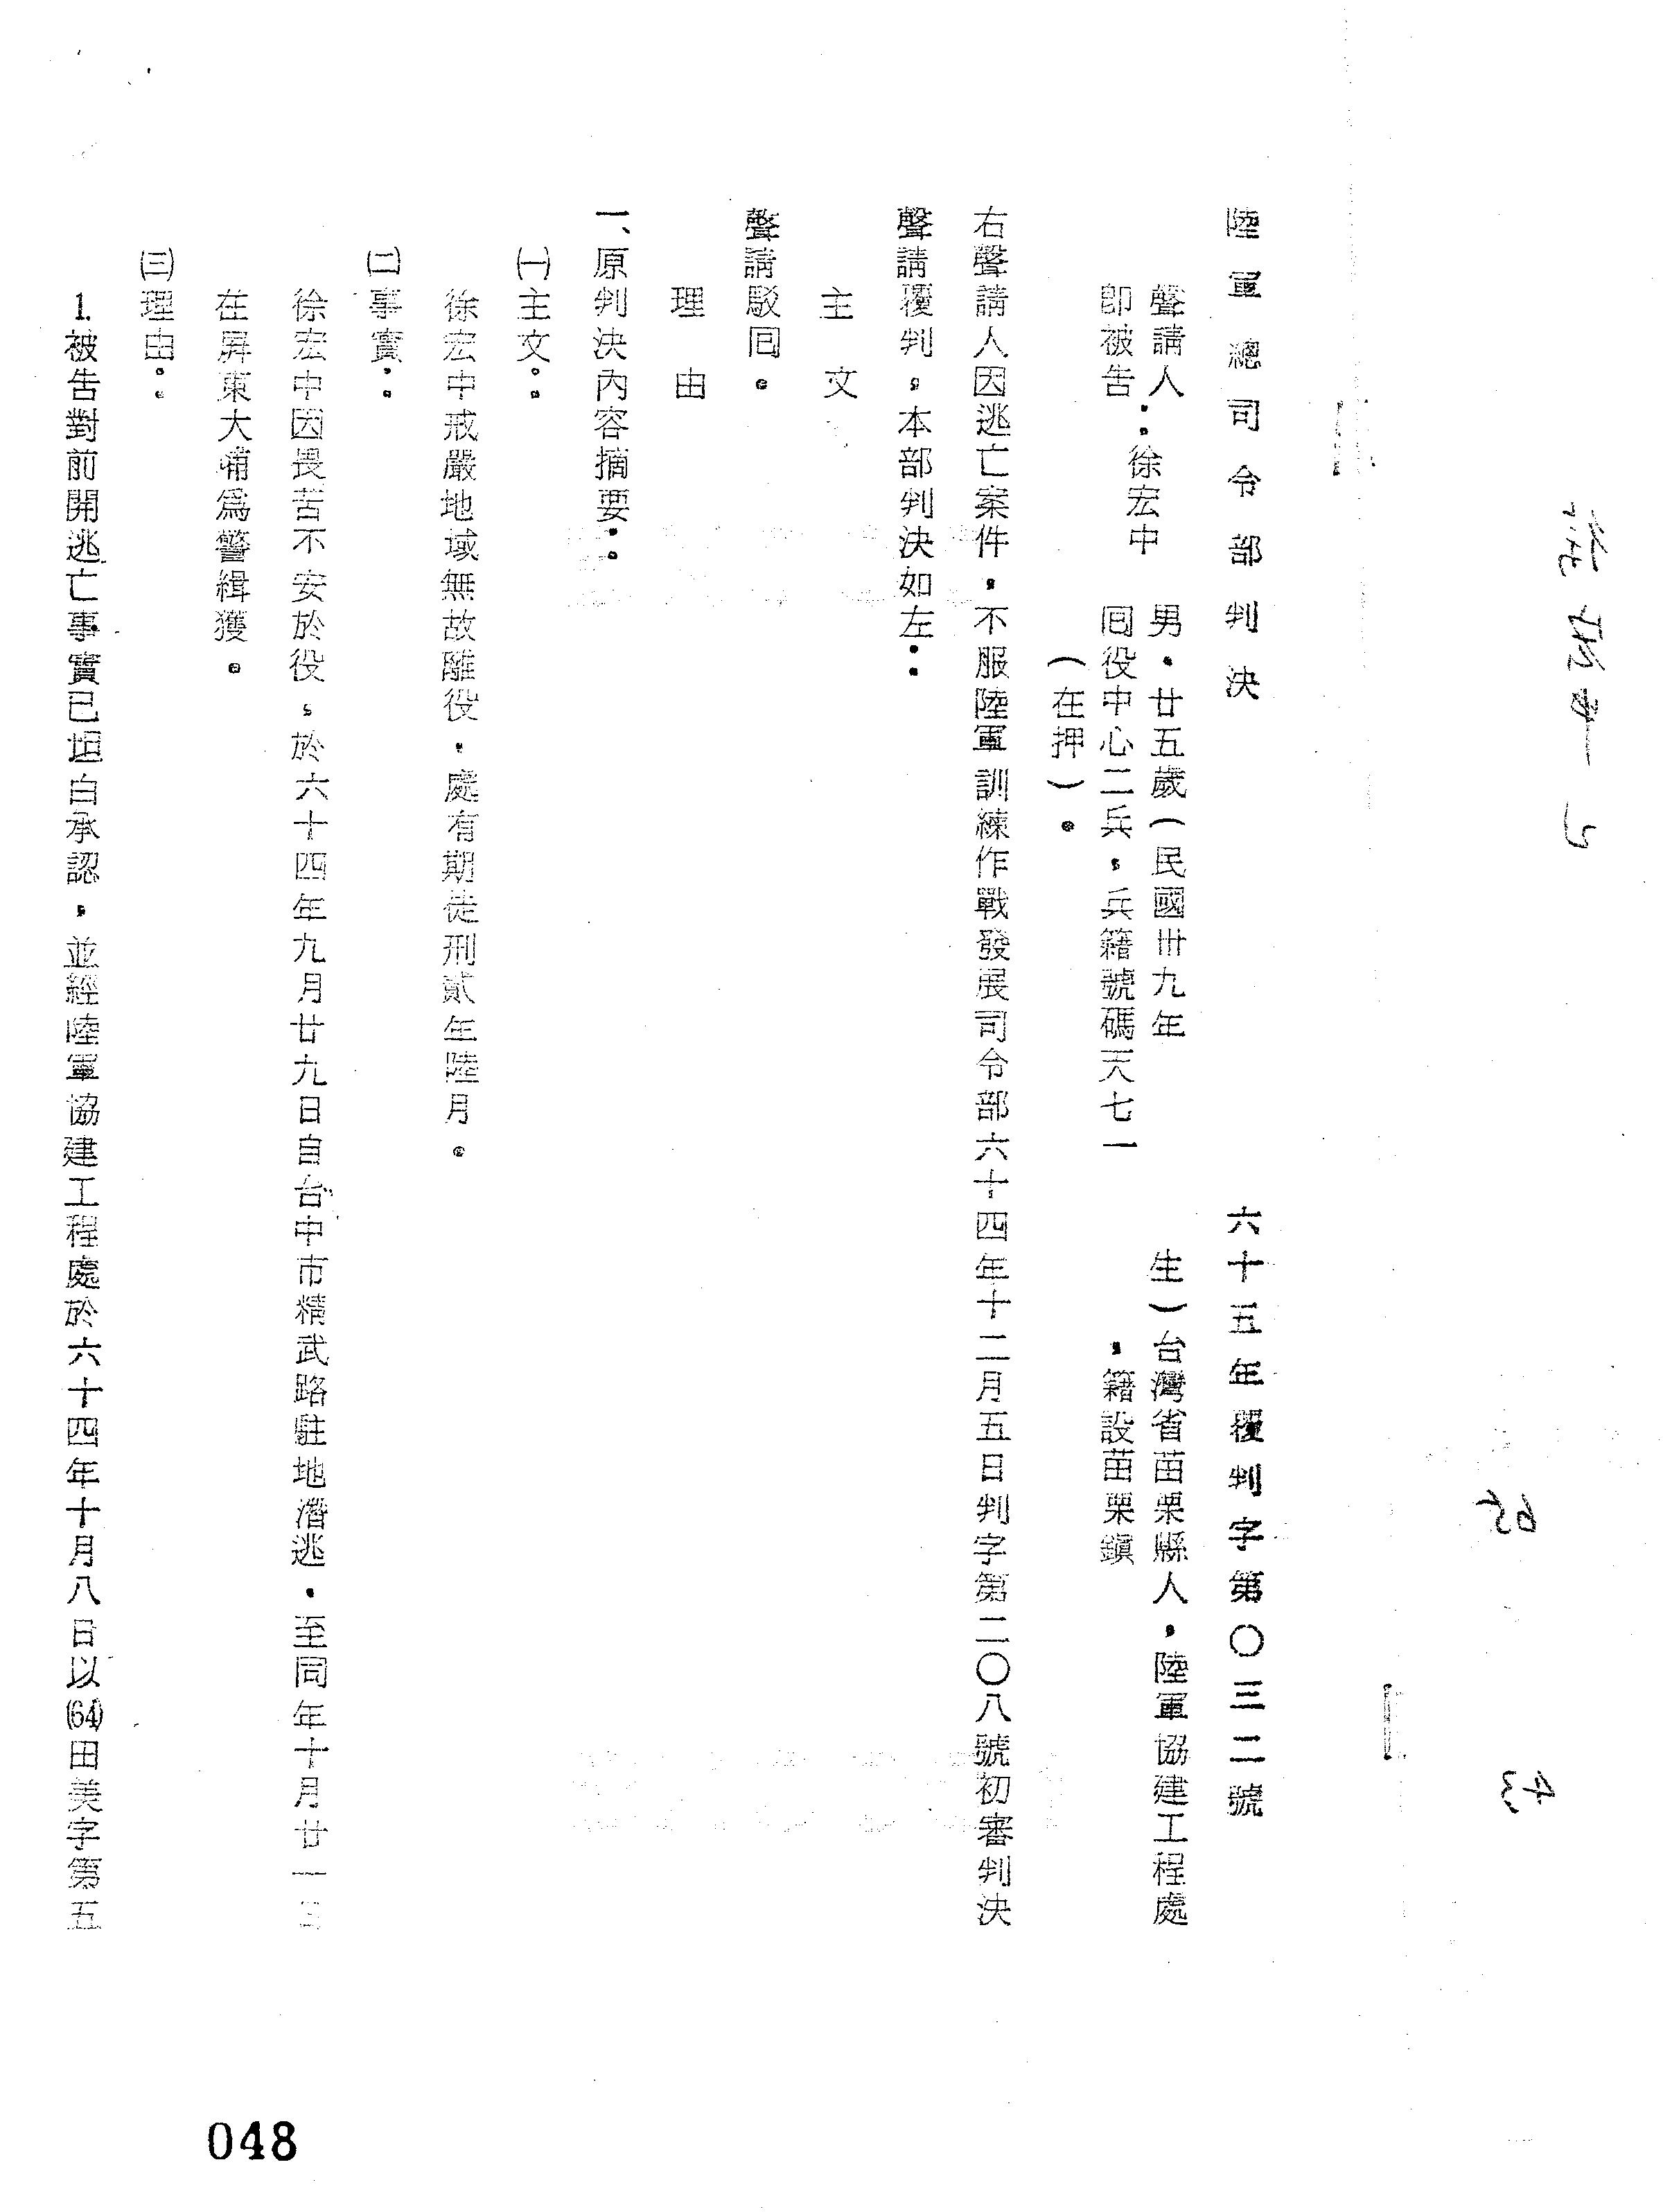 陸軍總司令部判決　六十五年覆判字第〇三二號
聲請人
即被告：徐宏中
男，廿五歲（民國卅九年
生）台灣省苗栗縣人，陸軍協建工程處
回役中心二兵，兵籍號碼天八七一
，籍設苗栗鎮
（在押）。
右聲請人因逃亡案件，不服陸軍訓練作戰發展司令部六十四年十二月五日判字第二〇八號初審判決
聲請覆判，本部判決如左：
主文
聲請駁回。
理由
一、原判決內容摘要：
㈠主文：
徐宏中戒嚴地域無故離役，處有期徒刑貳年陸月。
㈡事實：
徐宏中因畏苦不安於役，於六十四年九月廿九日自台中市精武路駐地潛逃，至同年十月廿一日
在屏東大埔為警緝獲。
㈢理由：
1.被告對前開逃亡事實已坦白承認，並經陸軍協建工程處於六十四年十月八日以(64)田美字第五
65
43
048